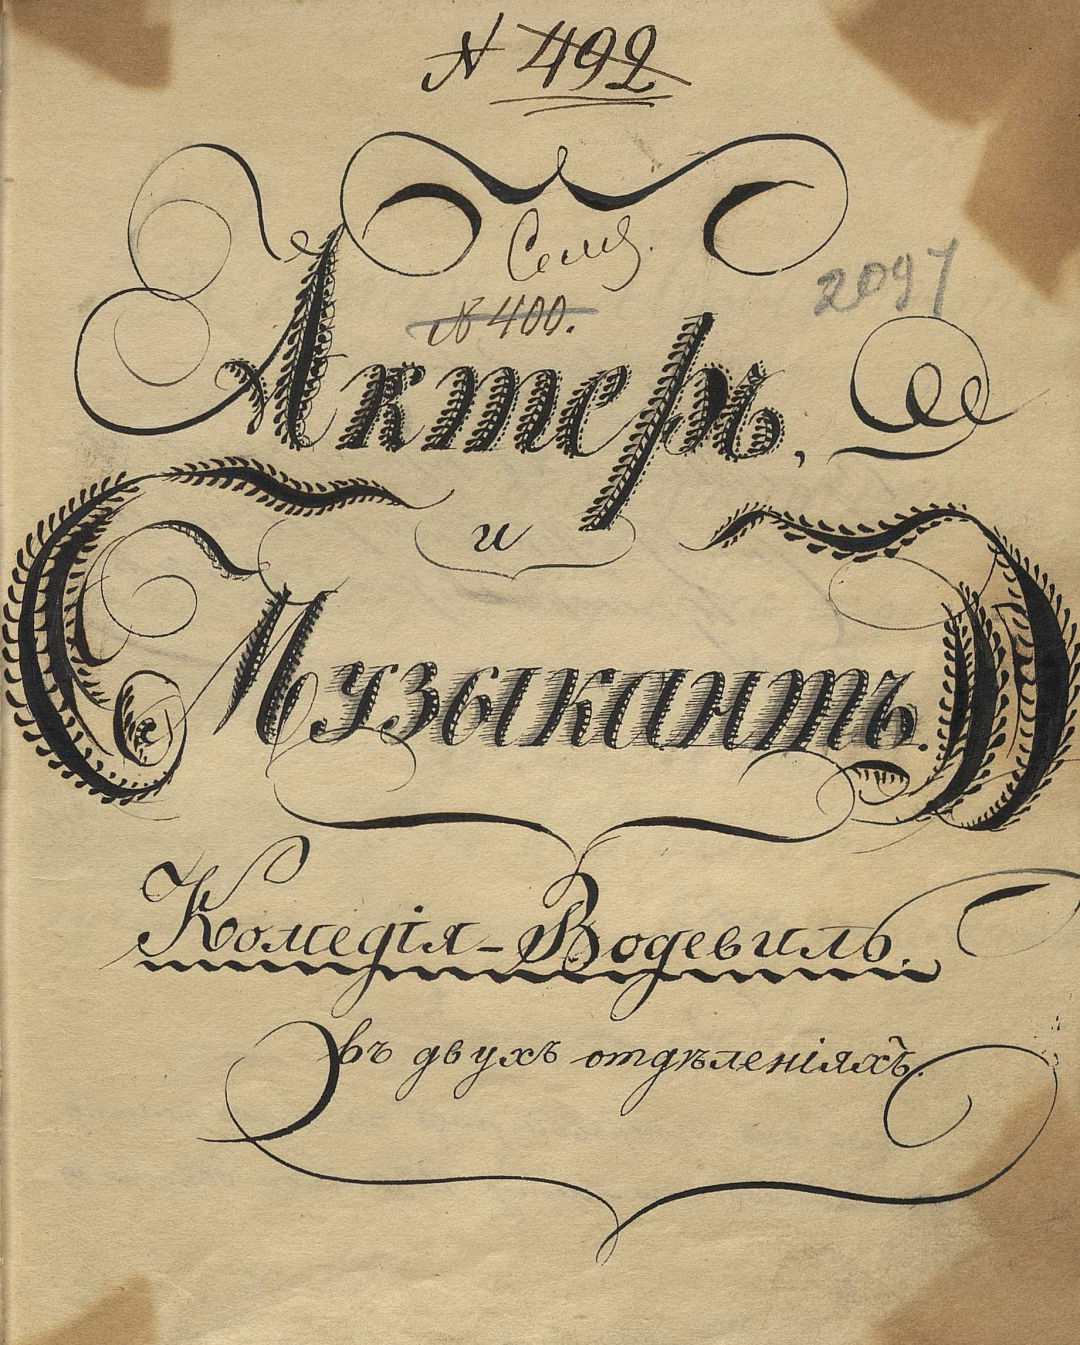 N 492
2097
N 400.
Актеръ,
и
Музыкантъ.
Комедія-Водевиль.
въ двухъ отдѣленіяхъ.